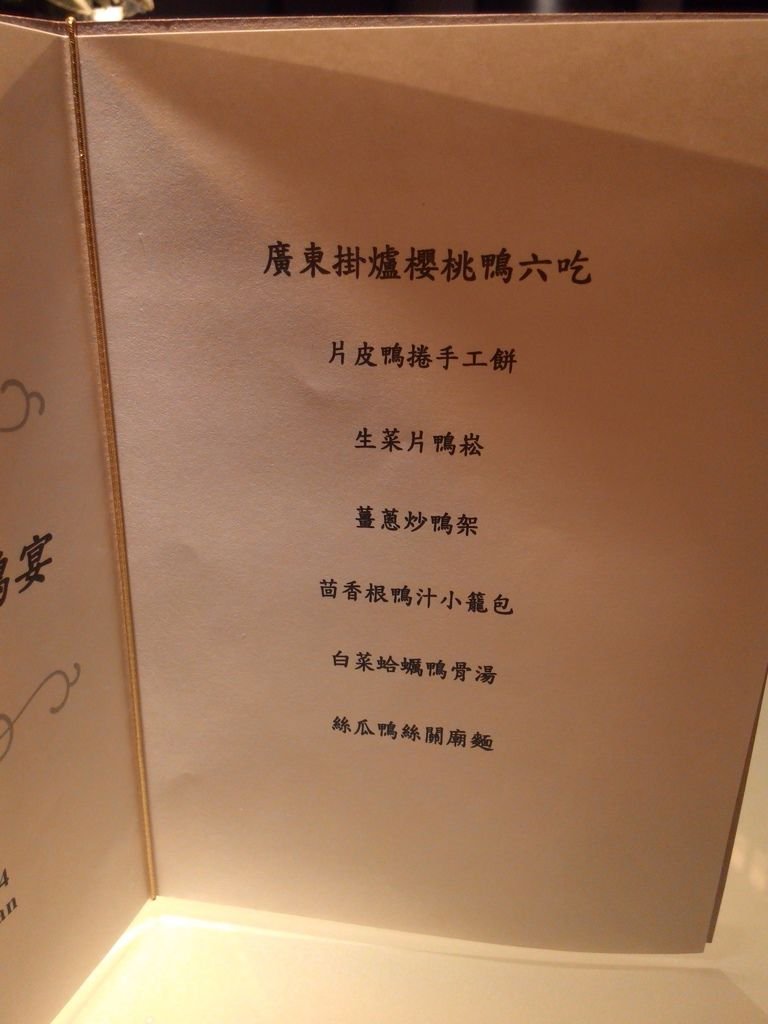 廣東掛爐櫻桃鴨六吃
片皮鴨捲手工餅
生菜片鴨崧
薑蔥炒鴨架
茴香根鴨汁小籠包
白菜蛤蠣鴨骨湯
絲瓜鴨絲關廟麵
宴
4
an